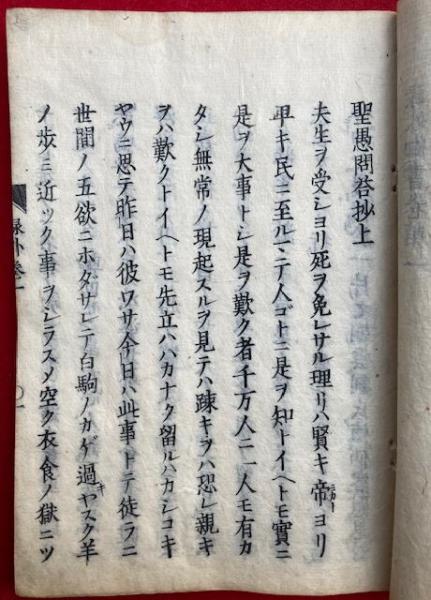 聖愚問答抄上
夫生ヲ受シヨリ死ヲ免レサル理リハ賢キ帝ヨリ
卑キ民ニ至ルマテ人コトニ是ヲ知トイヘトモ實ニ
是ヲ大事トシ是ヲ歎ク者千万人ニ一人モ有カ
タシ無常ノ現起スルヲ見テハ疎キヲハ恐レ親キ
ヲハ歎クトイヘトモ先立ハハカナク留ルハカシコキ
ヤウニ思テ昨日ハ彼ワサ今日ハ此事トテ徒ラニ
世間ノ五欲ニホタサレテ白駒ノカゲ過ヤスク羊
ノ歩ミ近ツク事ヲシラスメ空ク衣食ノ獄ニツ
録外巻一